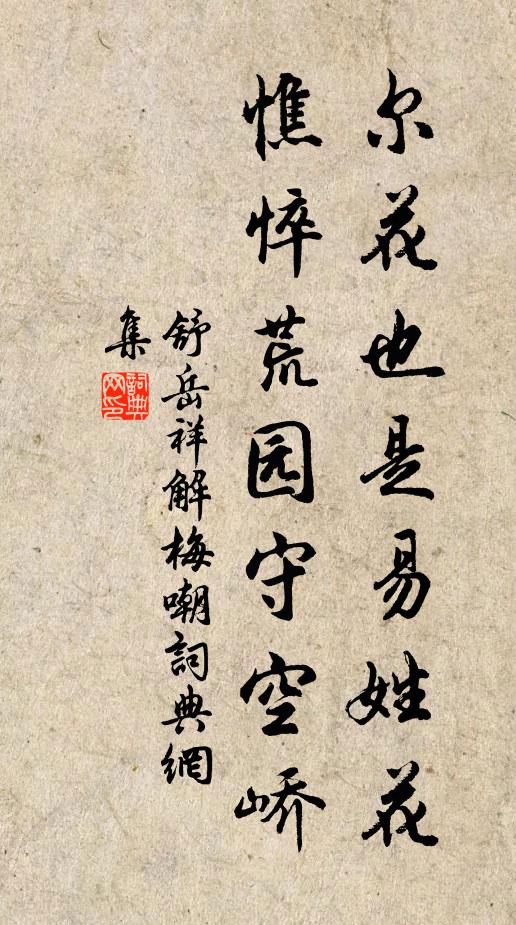 尔花也是易姓花
憔悴荒园守空峤
舒岳祥解梅嘲詞典網
集
詞典
网印